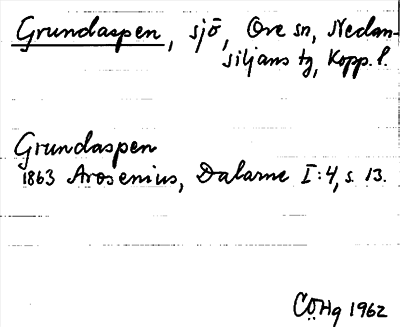 Grundaspen, sjö, Ore sn, Nedan-
siljans tg, Kopp. l.
Grundaspen
1863 Arosenius, Dalarne I:4, s. 13.
CÖHg 1962